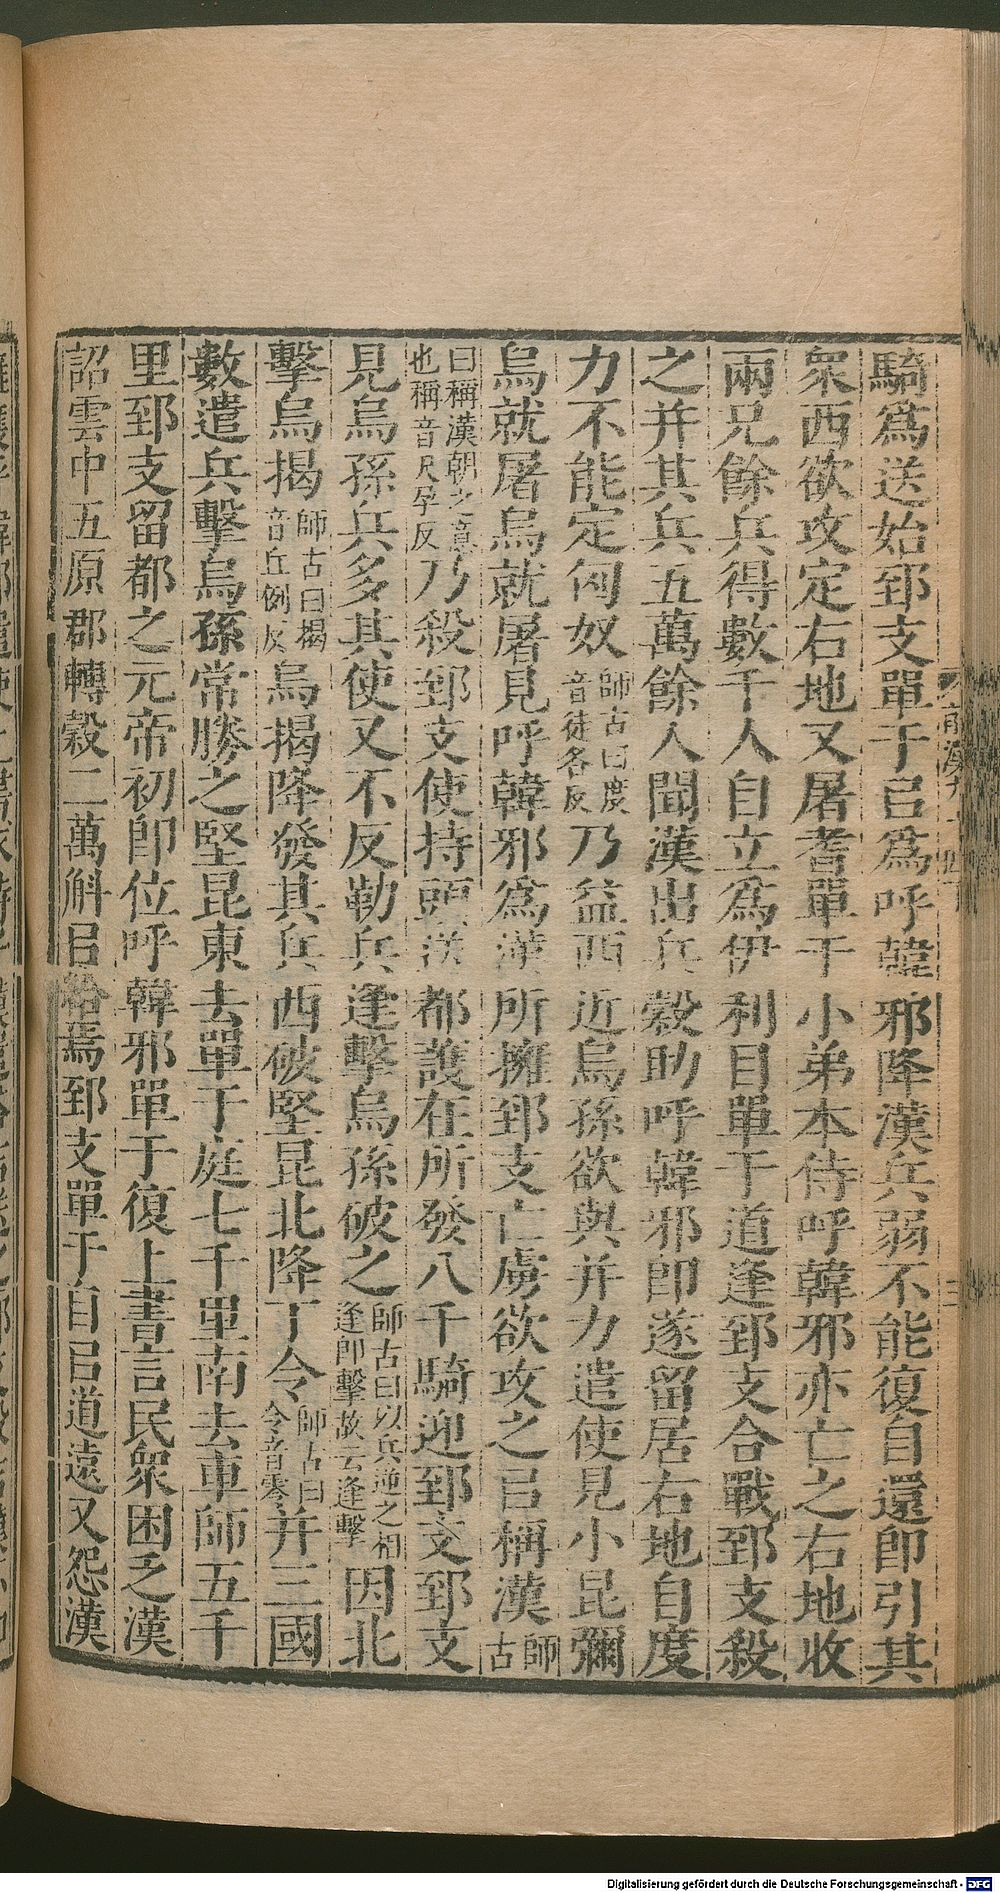 騎爲送始郅支單于㠯爲呼韓邪降漢兵弱不能復自還卽引其
衆西欲攻定右地又屠耆單于小弟本侍呼韓邪亦亡之右地收
兩兄餘兵得數千人自立爲伊利目單于道逢郅支合戰郅支殺
之并其兵五萬餘人聞漢出兵穀助呼韓邪卽遂留居右地自度
力不能定匈奴師古曰度音徒各反乃益西近烏孫欲與并力遣使見小昆彌
烏就屠烏就屠見呼韓邪爲漢所擁郅支亡虜欲攻之㠯稱漢師古
曰稱漢朝之意也稱音尺孕反乃殺郅支使持頭送都護在所發八千騎迎郅支郅支
見烏孫兵多其使又不反勒兵逢擊烏孫破之師古曰以兵逆之相逢卽擊故云逢擊因北
擊烏揭師古曰揭音丘例反烏揭降發其兵西破堅昆北降丁令師古曰令音零并三國
數遣兵擊烏孫常勝之堅昆東去單于庭七千里南去車師五千
里郅支留都之元帝初卽位呼韓邪單于復上書言民衆困乏漢
詔雲中五原郡轉穀二萬斛㠯給焉郅支單于自㠯道遠又怨漢
Digitalisierung gefördert durch die Deutsche Forschungsgemeinschaft - DFG